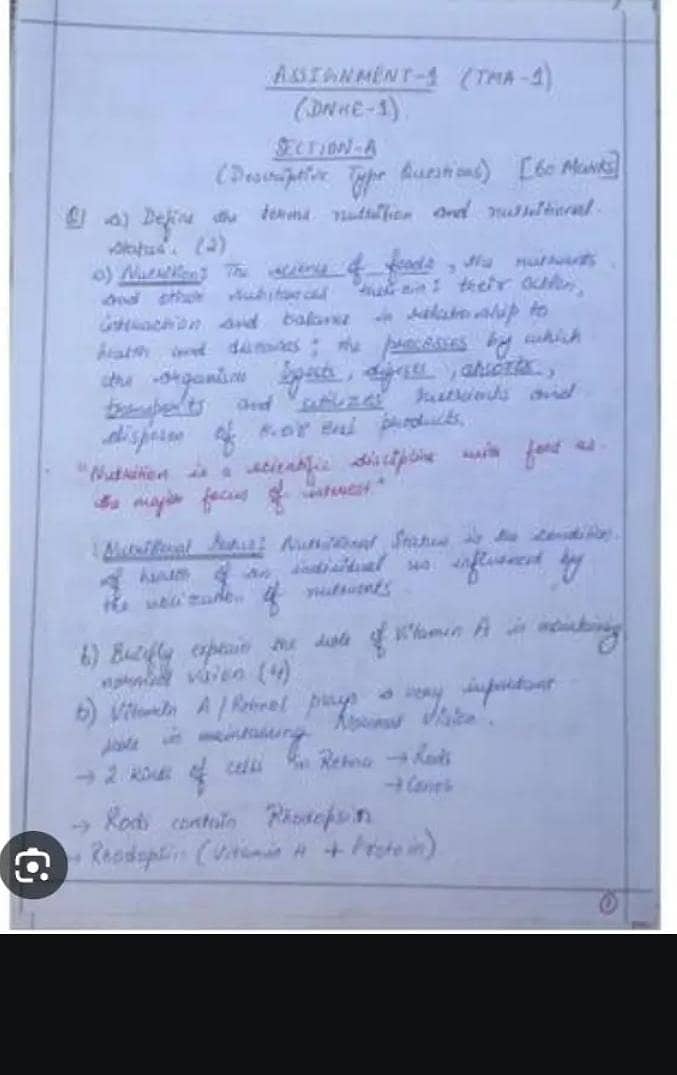 ASSIGNMENT-1 (TMA-1)
(DNHE-1)
SECTION-A
(Descriptive Type Questions) [60 Marks]
Q1 a) Define the terms nutrition and nutritional
status. (2)
a) Nutrition: The science of foods, the nutrients
and other substances therein; their action,
interaction and balance in relationship to
health and diseases; the processes by which
the organism ingests, digests, absorbs,
transports and utilizes nutrients and
disposes of their end products.
"Nutrition is a scientific discipline with food as
the major focus of interest"
Nutritional Status: Nutritional Status is the condition
of health of an individual as influenced by
the utilization of nutrients
b) Briefly explain the role of Vitamin A in maintaining
normal vision (4)
b) Vitamin A / Retinol plays a very important
role in maintaining Normal Vision.
→ 2 kinds of cells in Retina → Rods
→ Cones
→ Rods contain Rhodopsin
→ Rhodopsin (Vitamin A + Protein)
1